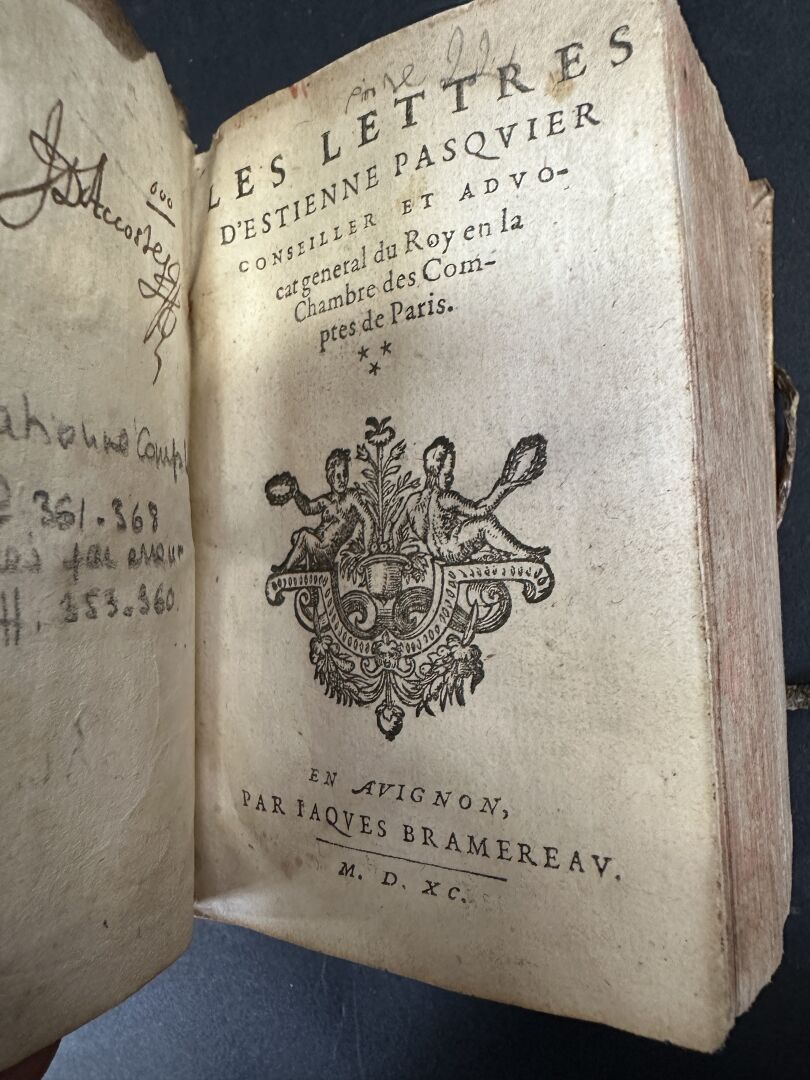 J DAccoste
361.368
353.360.
LES LETTRES
D'ESTIENNE PASQVIER
CONSEILLER ET ADVO-
cat general du Roy en la
Chambre des Com-
ptes de Paris.
EN AVIGNON,
PAR IAQVES BRAMEREAV.
M. D. XC.